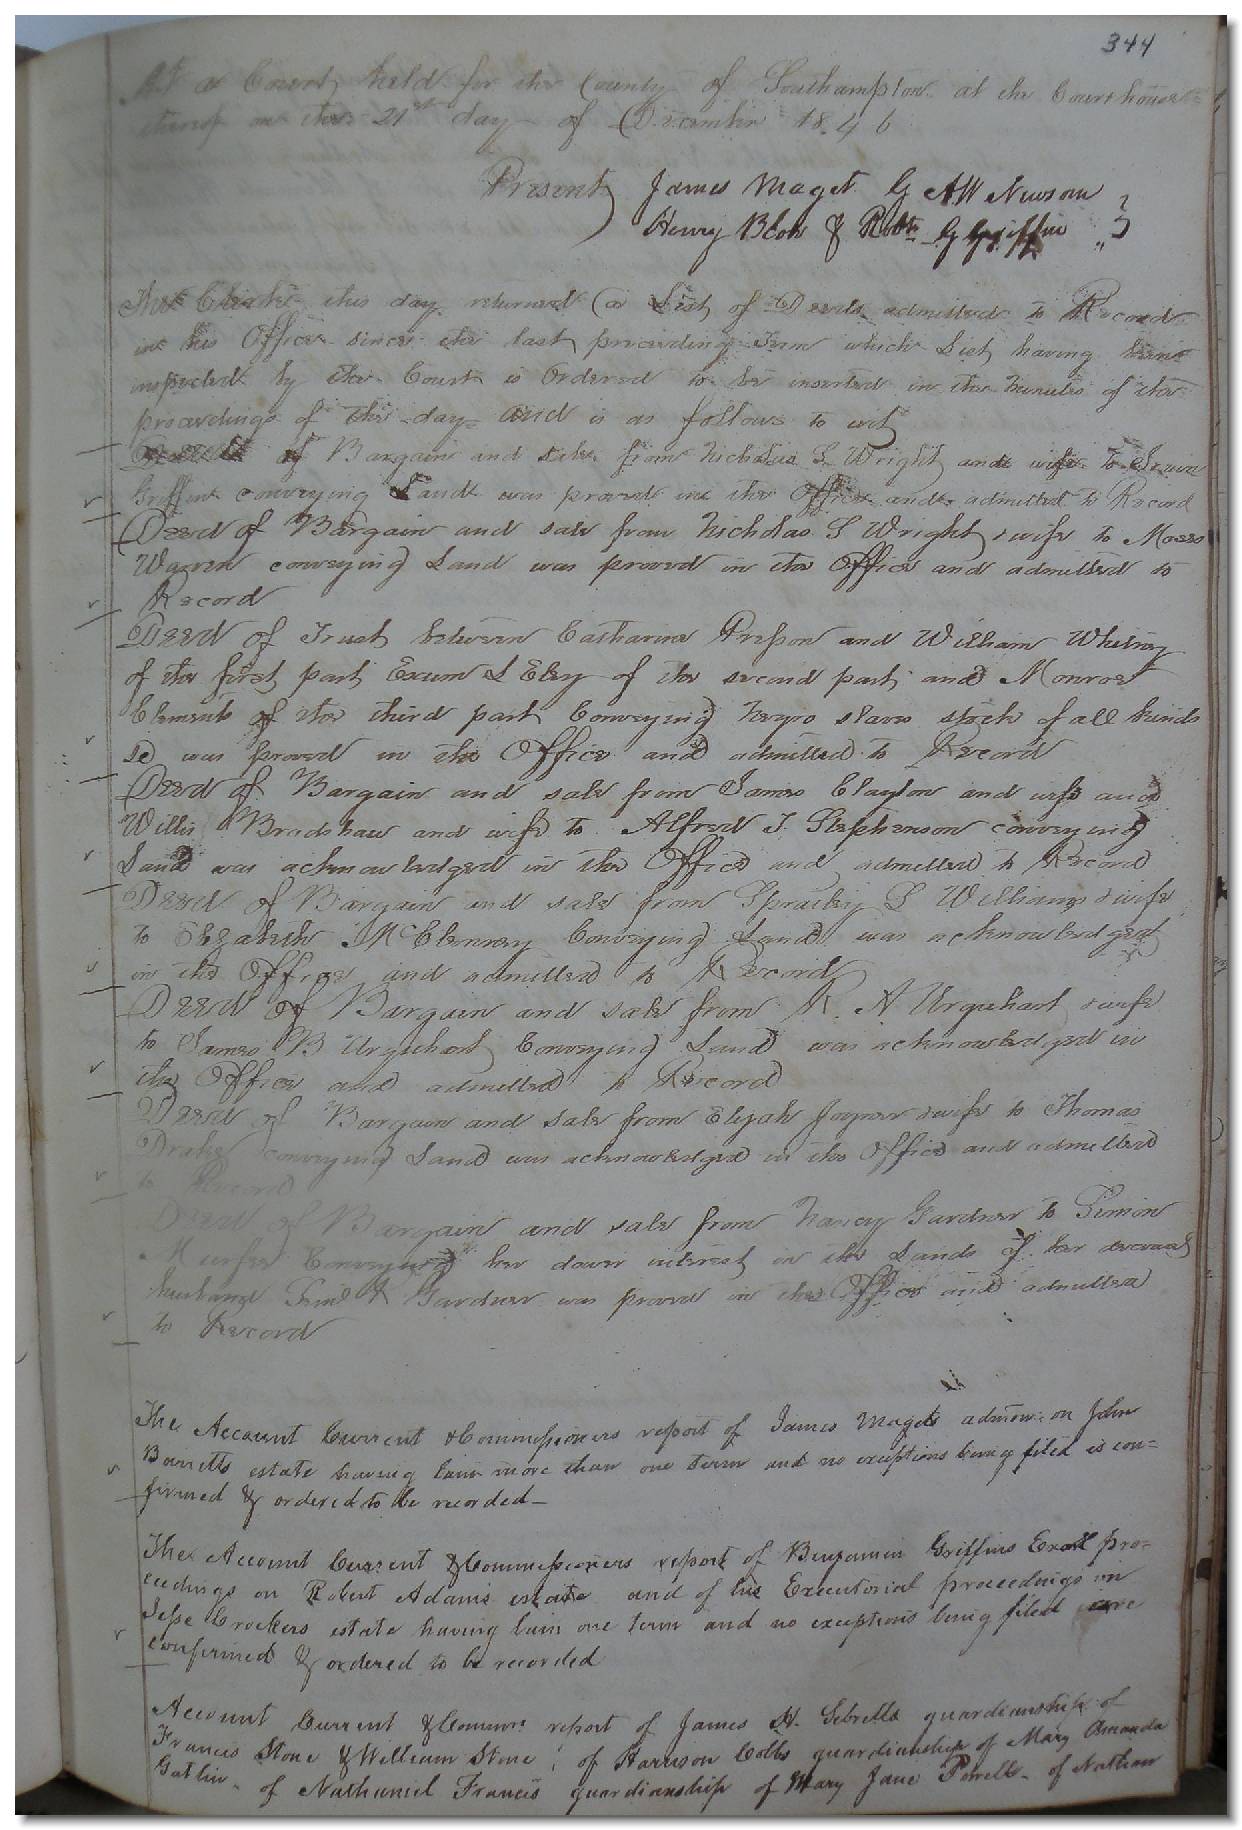 344
At a Court held for the County of Southampton at the Courthouse
thereof on the 21st day of December 1846
Present James Maget G A W Newsom
Henry Blow & Robt G Griffin
The Clerk this day returned a List of Deeds admitted to Record
in his Office since the last preceeding Term which List having been
inspected by the Court is Ordered to be inserted in the minutes of the
proceedings of this day and is as follows to wit
Deed of Bargain and sale from Nicholas S Wright and wife to Irwin
Griffin conveying Land was proved in the Office and admitted to Record
Deed of Bargain and sale from Nicholas S Wright & wife to Moses
Warren conveying Land was proved in the Office and admitted to
Record
Deed of Trust between Catharine Presson and William Whitney
of the first part Exum L Eley of the second part and Monroe
Clements of the third part Conveying negro slaves stock of all kinds
&c was proved in the Office and admitted to Record
Deed of Bargain and sale from James Clayton and wife and
Willis Bradshaw and wife to Alfred J. Stephenson conveying
Land was acknowledged in the Office and admitted to Record
Deed of Bargain and sale from Spratley S Williams & wife
to Elizabeth McClenney Conveying Land was acknowledged
in the Office and admitted to Record
Deed of Bargain and sale from R. A Urquhart & wife
to James B Urquhart Conveying Land was acknowledged in
the Office and admitted to Record
Deed of Bargain and sale from Elijah Joyner & wife to Thomas
Drake conveying Land was acknowledged in the Office and admitted
to Record
Deed of Bargain and sale from Nancy Gardner to Simon
Murfee Conveying her dower interest in the Lands of her deceased
husband A Gardner was proved in the Office and admitted
to Record
The Account Current & Commissioners report of James Magets admon: on John
Barretts estate having lain more than one term and no exceptions being filed is con=
firmed & ordered to be recorded—
The Account Current & Commissioners report of Benjamin Griffins Exorl pro=
ceedings on Robert Adams estate and of his Executorial proceedings on
Jesse Crockers estate having lain one term and no exceptions being filed are
confirmed & ordered to be recorded
Account Current & Commrs report of James H. Sebrells guardianship of
Francis Stone & William Stone ; of Harrison Cobbs guardianship of Mary Amanda
Gatlin - of Nathaniel Francis guardianship of Mary Jane Powell - of Nathan